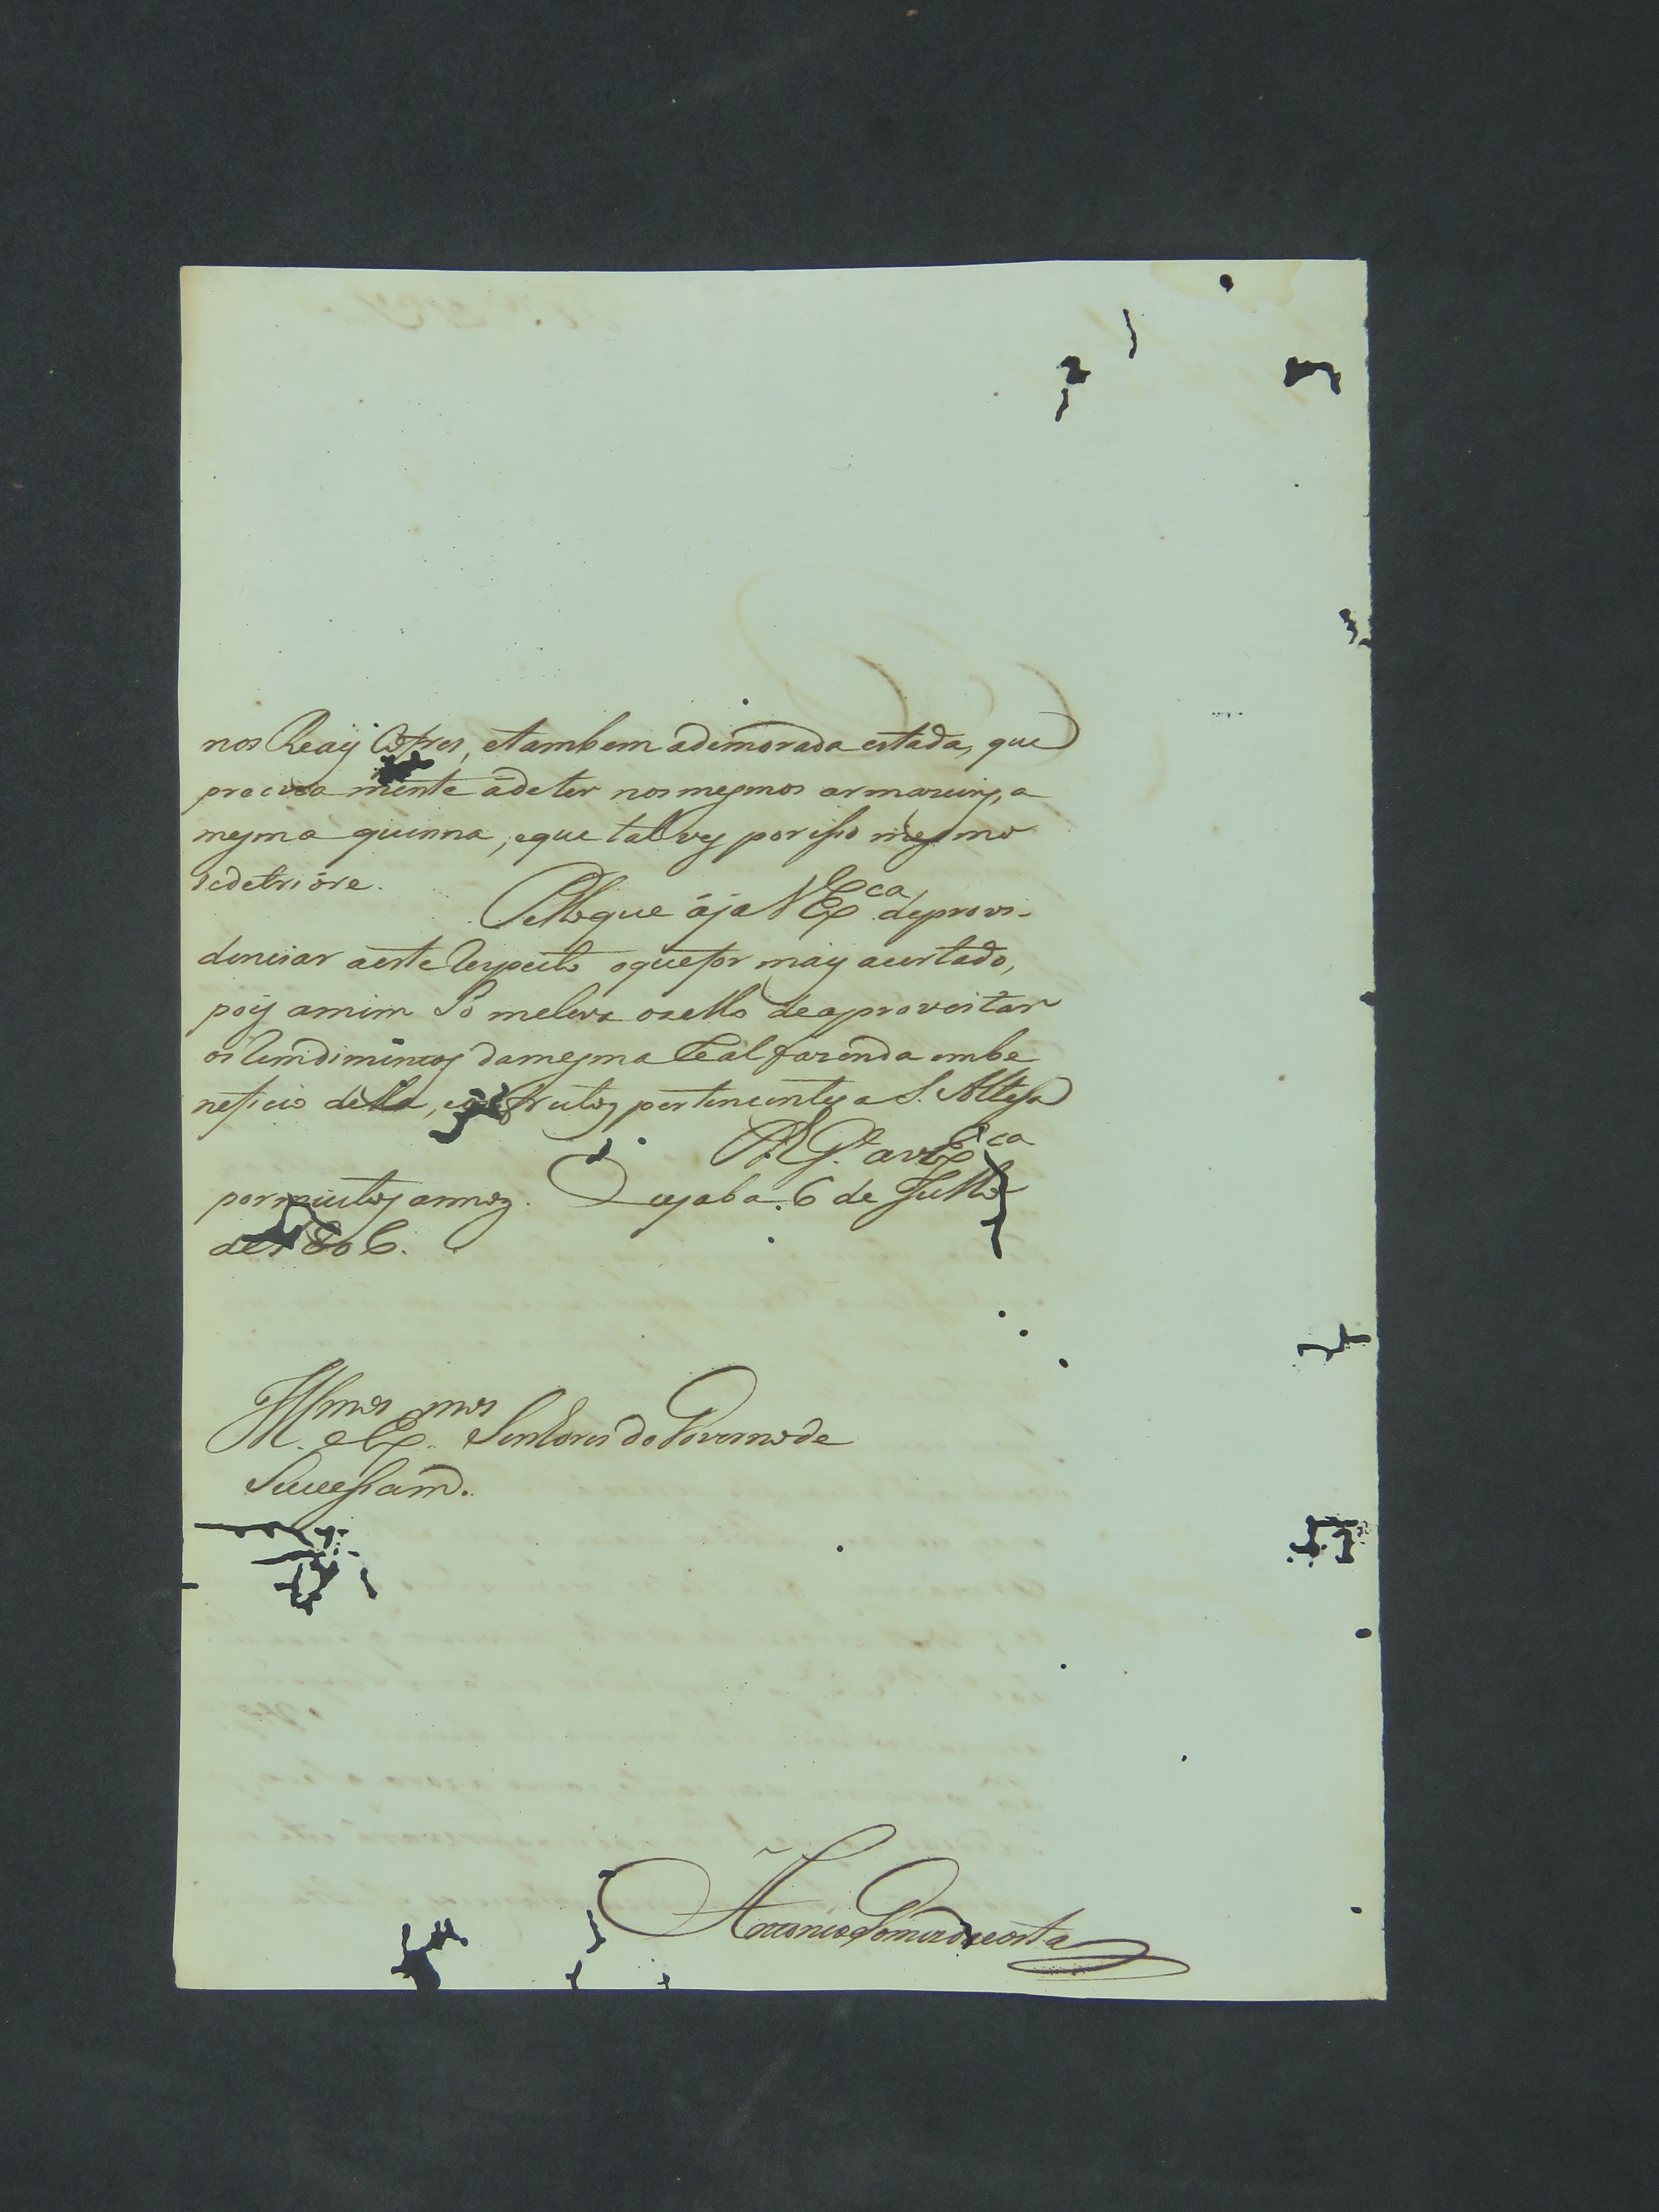 nos Reaiz Cofres, etambem ademorada estada, que
preciza mente ádeter nosmesmos armazeins, a
mesma quinna, eque talvez porisso mesmo
sedetrióre.
Pello que ája VEx.ca deprovi-
denciar aeste Respeito oquefor maiz acertado,
poiz amim Só meleva ozello deaproveitar
os Rendimentoz damesma Real fazenda embe
neficio della, fructoz pertencentez a S. Alteza
D.G.e avEx.ca
pormuitoz annoz. Cuyaba. 6 de Julho
de1806.
Illmos eEx.mos Senhores do Governo de
Sucessam.
Antonio Gomes dacosta